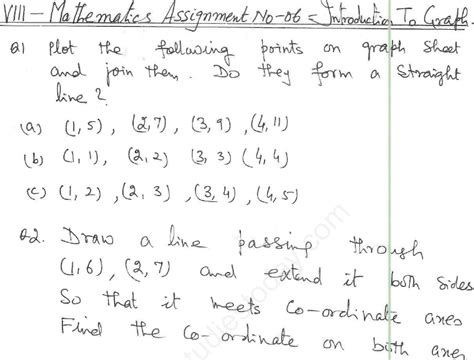 VIII - Mathematics Assignment No-06 = Introduction To Graph.
Q1 Plot the following points on graph sheet
and join them. Do they form a straight
line ?
(a) (1,5), (2,7), (3,9), (4,11)
(b) (1,1), (2,2) (3,3) (4,4)
(c) (1,2), (2,3), (3,4), (4,5)
Q2. Draw a line passing through
(1,6), (2,7) and extend it both sides
So that it meets Co-ordinate axes
Find the Co-ordinate on both axes
studiestoday.com